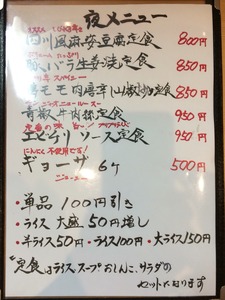 夜メニュー
四川風麻安豆腐定食 800円
豚バラ生姜焼定食 850円
スパイシー
モモ肉唐辛山椒炒め定食 850円
青椒牛肉絲定食 950円
エビチリソース定食 950円
にんにく不使用です!
ギョーザ 6ヶ 500円
・単品 100円引き
・ライス 大盛 50円増し
・半ライス50円・ライス100円・大ライス150円
"定食"はライス スープ おしんこ、サラダの
セットになります